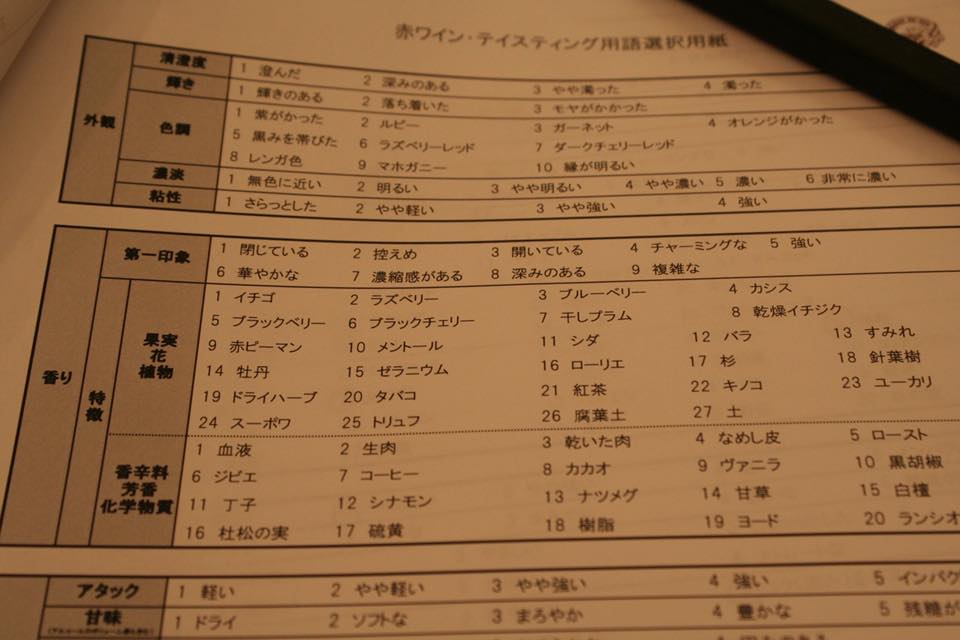 赤ワイン・テイスティング用語選択用紙
外観
清澄度 1 澄んだ 2 深みのある 3 やや濁った 4 濁った
輝き 1 輝きのある 2 落ち着いた 3 モヤがかかった
色調 1 紫がかった 2 ルビー 3 ガーネット 4 オレンジがかった
5 黒みを帯びた 6 ラズベリーレッド 7 ダークチェリーレッド
8 レンガ色 9 マホガニー 10 縁が明るい
濃淡 1 無色に近い 2 明るい 3 やや明るい 4 やや濃い 5 濃い 6 非常に濃い
粘性 1 さらっとした 2 やや軽い 3 やや強い 4 強い
香り
第一印象 1 閉じている 2 控えめ 3 開いている 4 チャーミングな 5 強い
6 華やかな 7 濃縮感がある 8 深みのある 9 複雑な
特徴
果実 花 植物
1 イチゴ 2 ラズベリー 3 ブルーベリー 4 カシス
5 ブラックベリー 6 ブラックチェリー 7 干しプラム 8 乾燥イチジク
9 赤ピーマン 10 メントール 11 シダ 12 バラ 13 すみれ
14 牡丹 15 ゼラニウム 16 ローリエ 17 杉 18 針葉樹
19 ドライハーブ 20 タバコ 21 紅茶 22 キノコ 23 ユーカリ
24 スーボワ 25 トリュフ 26 腐葉土 27 土
香辛料 芳香 化学物質
1 血液 2 生肉 3 乾いた肉 4 なめし皮 5 ロースト
6 ジビエ 7 コーヒー 8 カカオ 9 ヴァニラ 10 黒胡椒
11 丁子 12 シナモン 13 ナツメグ 14 甘草 15 白檀
16 杜松の実 17 硫黄 18 樹脂 19 ヨード 20 ランシオ
アタック 1 軽い 2 やや軽い 3 やや強い 4 強い 5 インパク
甘味 1 ドライ 2 ソフトな 3 まろやか 4 豊かな 5 残糖が